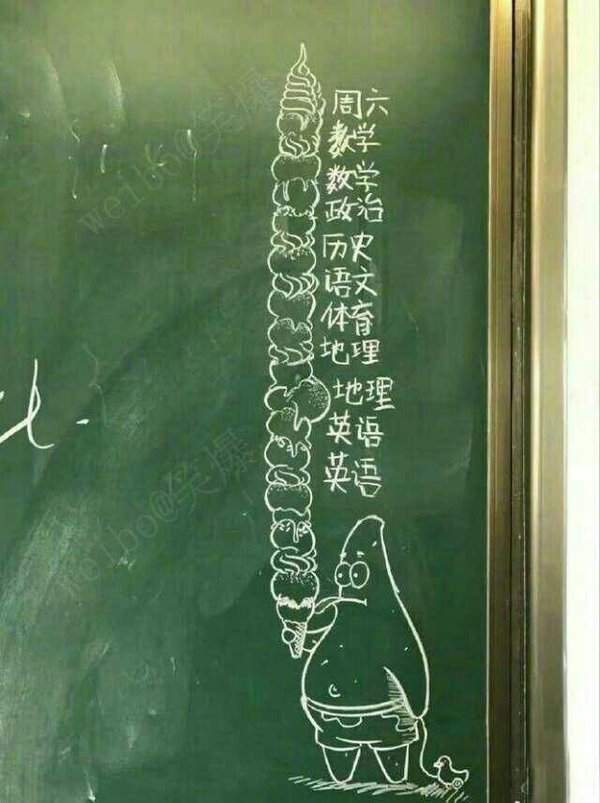 周六
数学
数学
政治
历史
语文
体育
地理
地理
英语
英语
weibo@笑爆
weibo@笑爆